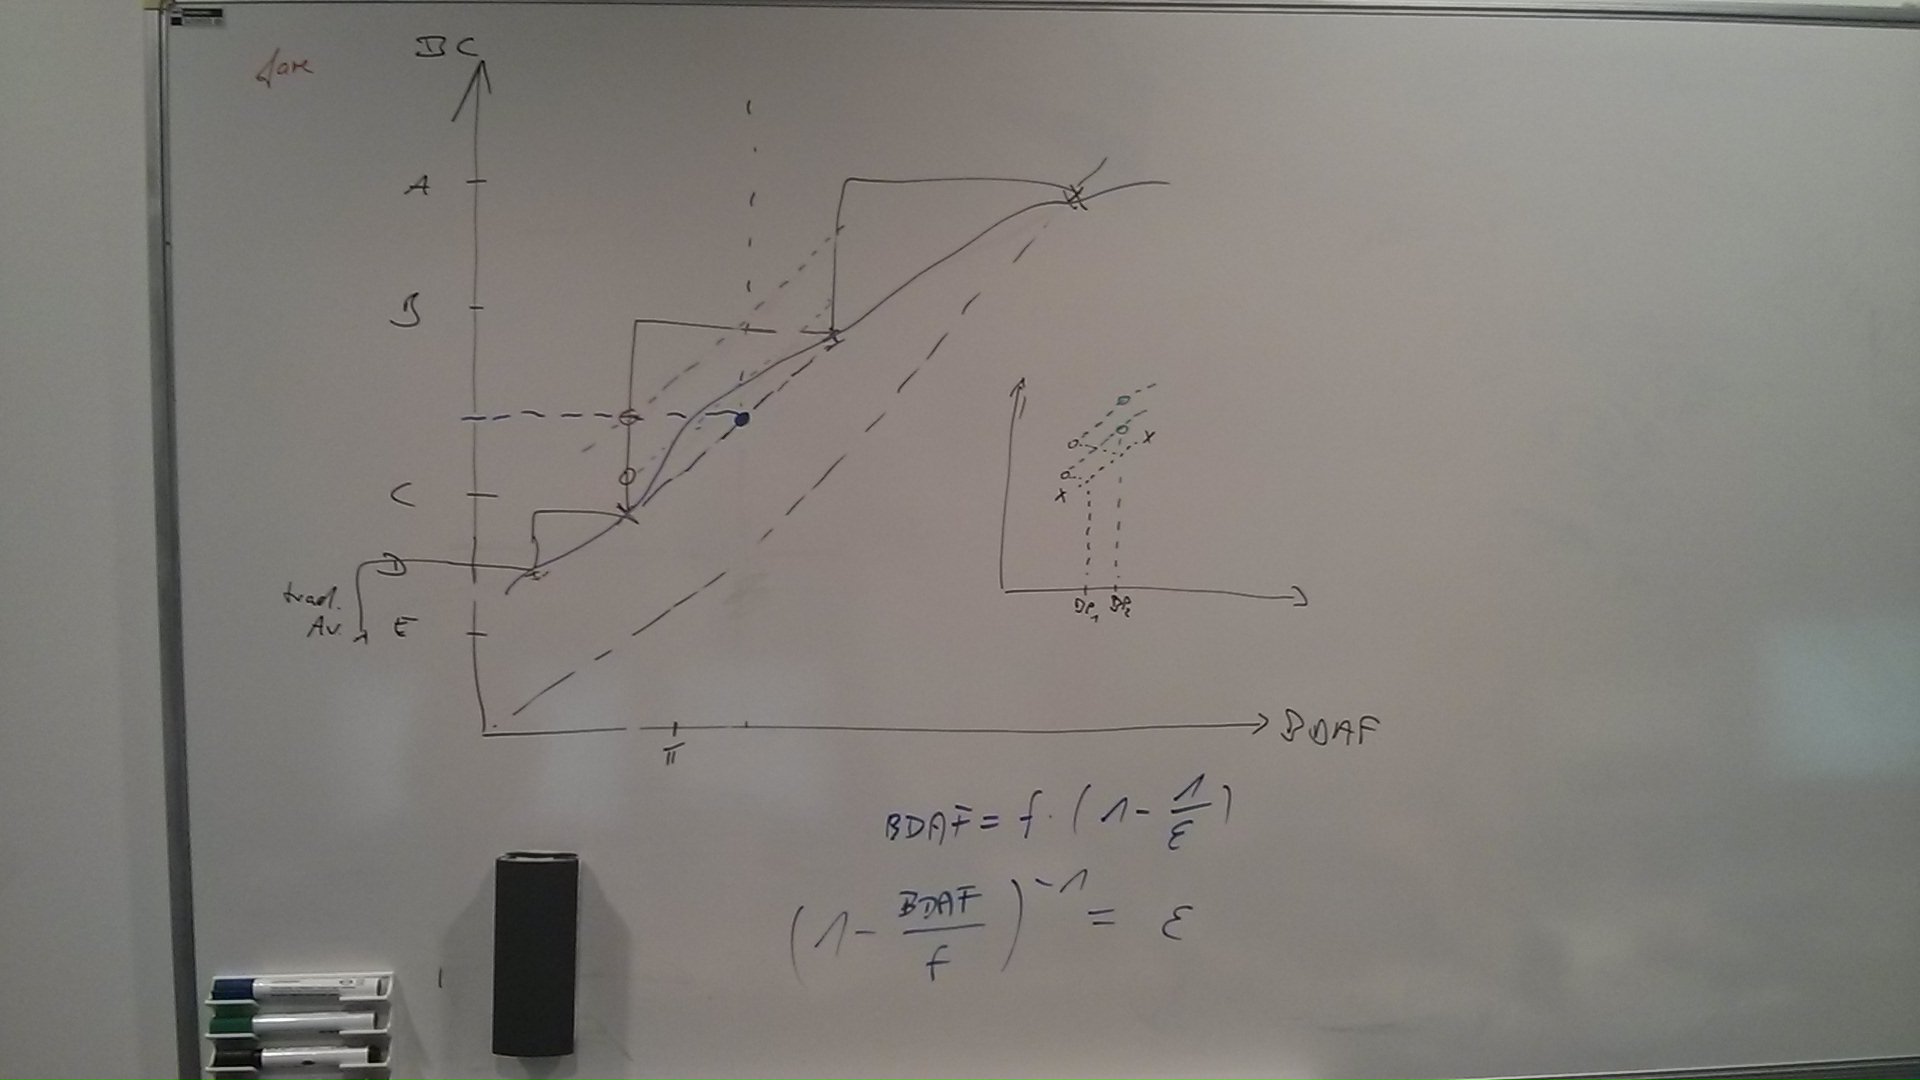 BC
A
B
C
D
trad.
Av. E
π
BDAF
DP₁ DP₂
BDAF = f · (1 - 1/ε)
(1 - BDAF/f)⁻¹ = ε